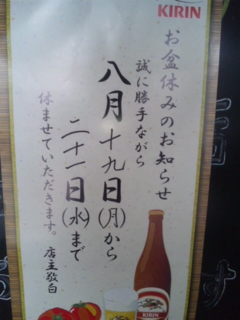 KIRIN
お盆休みのお知らせ
誠に勝手ながら
八月十九日(月)から
二十一日(水)まで
休ませていただきます。
店主敬白
KIRIN